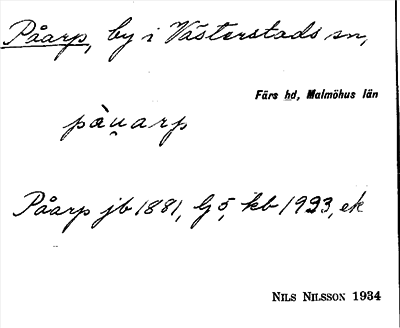 Påarp, by i Västerstads sn,
Färs hd, Malmöhus län
pàu̯arp
Påarp jb 1881, G 5, kb 1923, ek
NILS NILSSON 1934